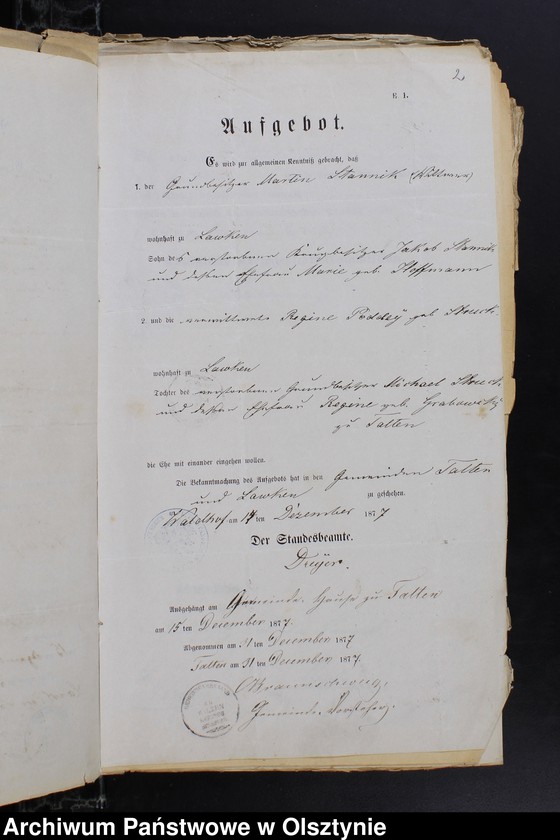 2.
E. 1.
Aufgebot.
Es wird zur allgemeinen Kenntniß gebracht, daß
1. der Grundbesitzer Martin Stannik (Wittwer)
wohnhaft zu Lawken
Sohn des verstorbenen Krugbesitzer Jakob Stannik
und dessen Ehefrau Marie geb. Hoffmann
2. und die verwittwete Regine Poddey geb
wohnhaft zu Lawken
Tochter des verstorbenen Grundbesitzer Michael
und dessen Ehefrau Regine geb Grabowski
zu Talten
die Ehe mit einander eingehen wollen.
Die Bekanntmachung des Aufgebots hat in den Gemeinden Talten
und Lawken zu geschehen.
Waldhof am 14 ten Dezember 1877
Der Standesbeamte.
Dreyer.
Ausgehängt am Gemeinde Hause zu Talten
am 15 ten December 1877.
Abgenommen am 31 ten December 1877
Talten am 31 ten December 1877.
Gemeinde Vorsteher.
Archiwum Państwowe w Olsztynie